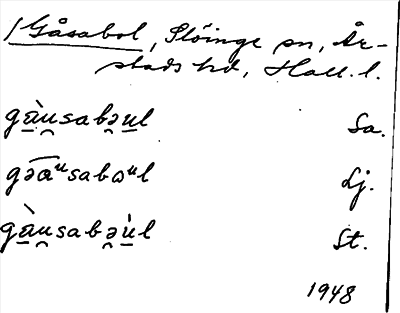 /Gåsabol, Slöinge sn, År-
stads hd, Hall. l.
gà̱u̯sabə̯u̱l Sa.
gəāᵘsabωᵘl Lj.
gà̱u̯sabə̯ù̱l St.
1948